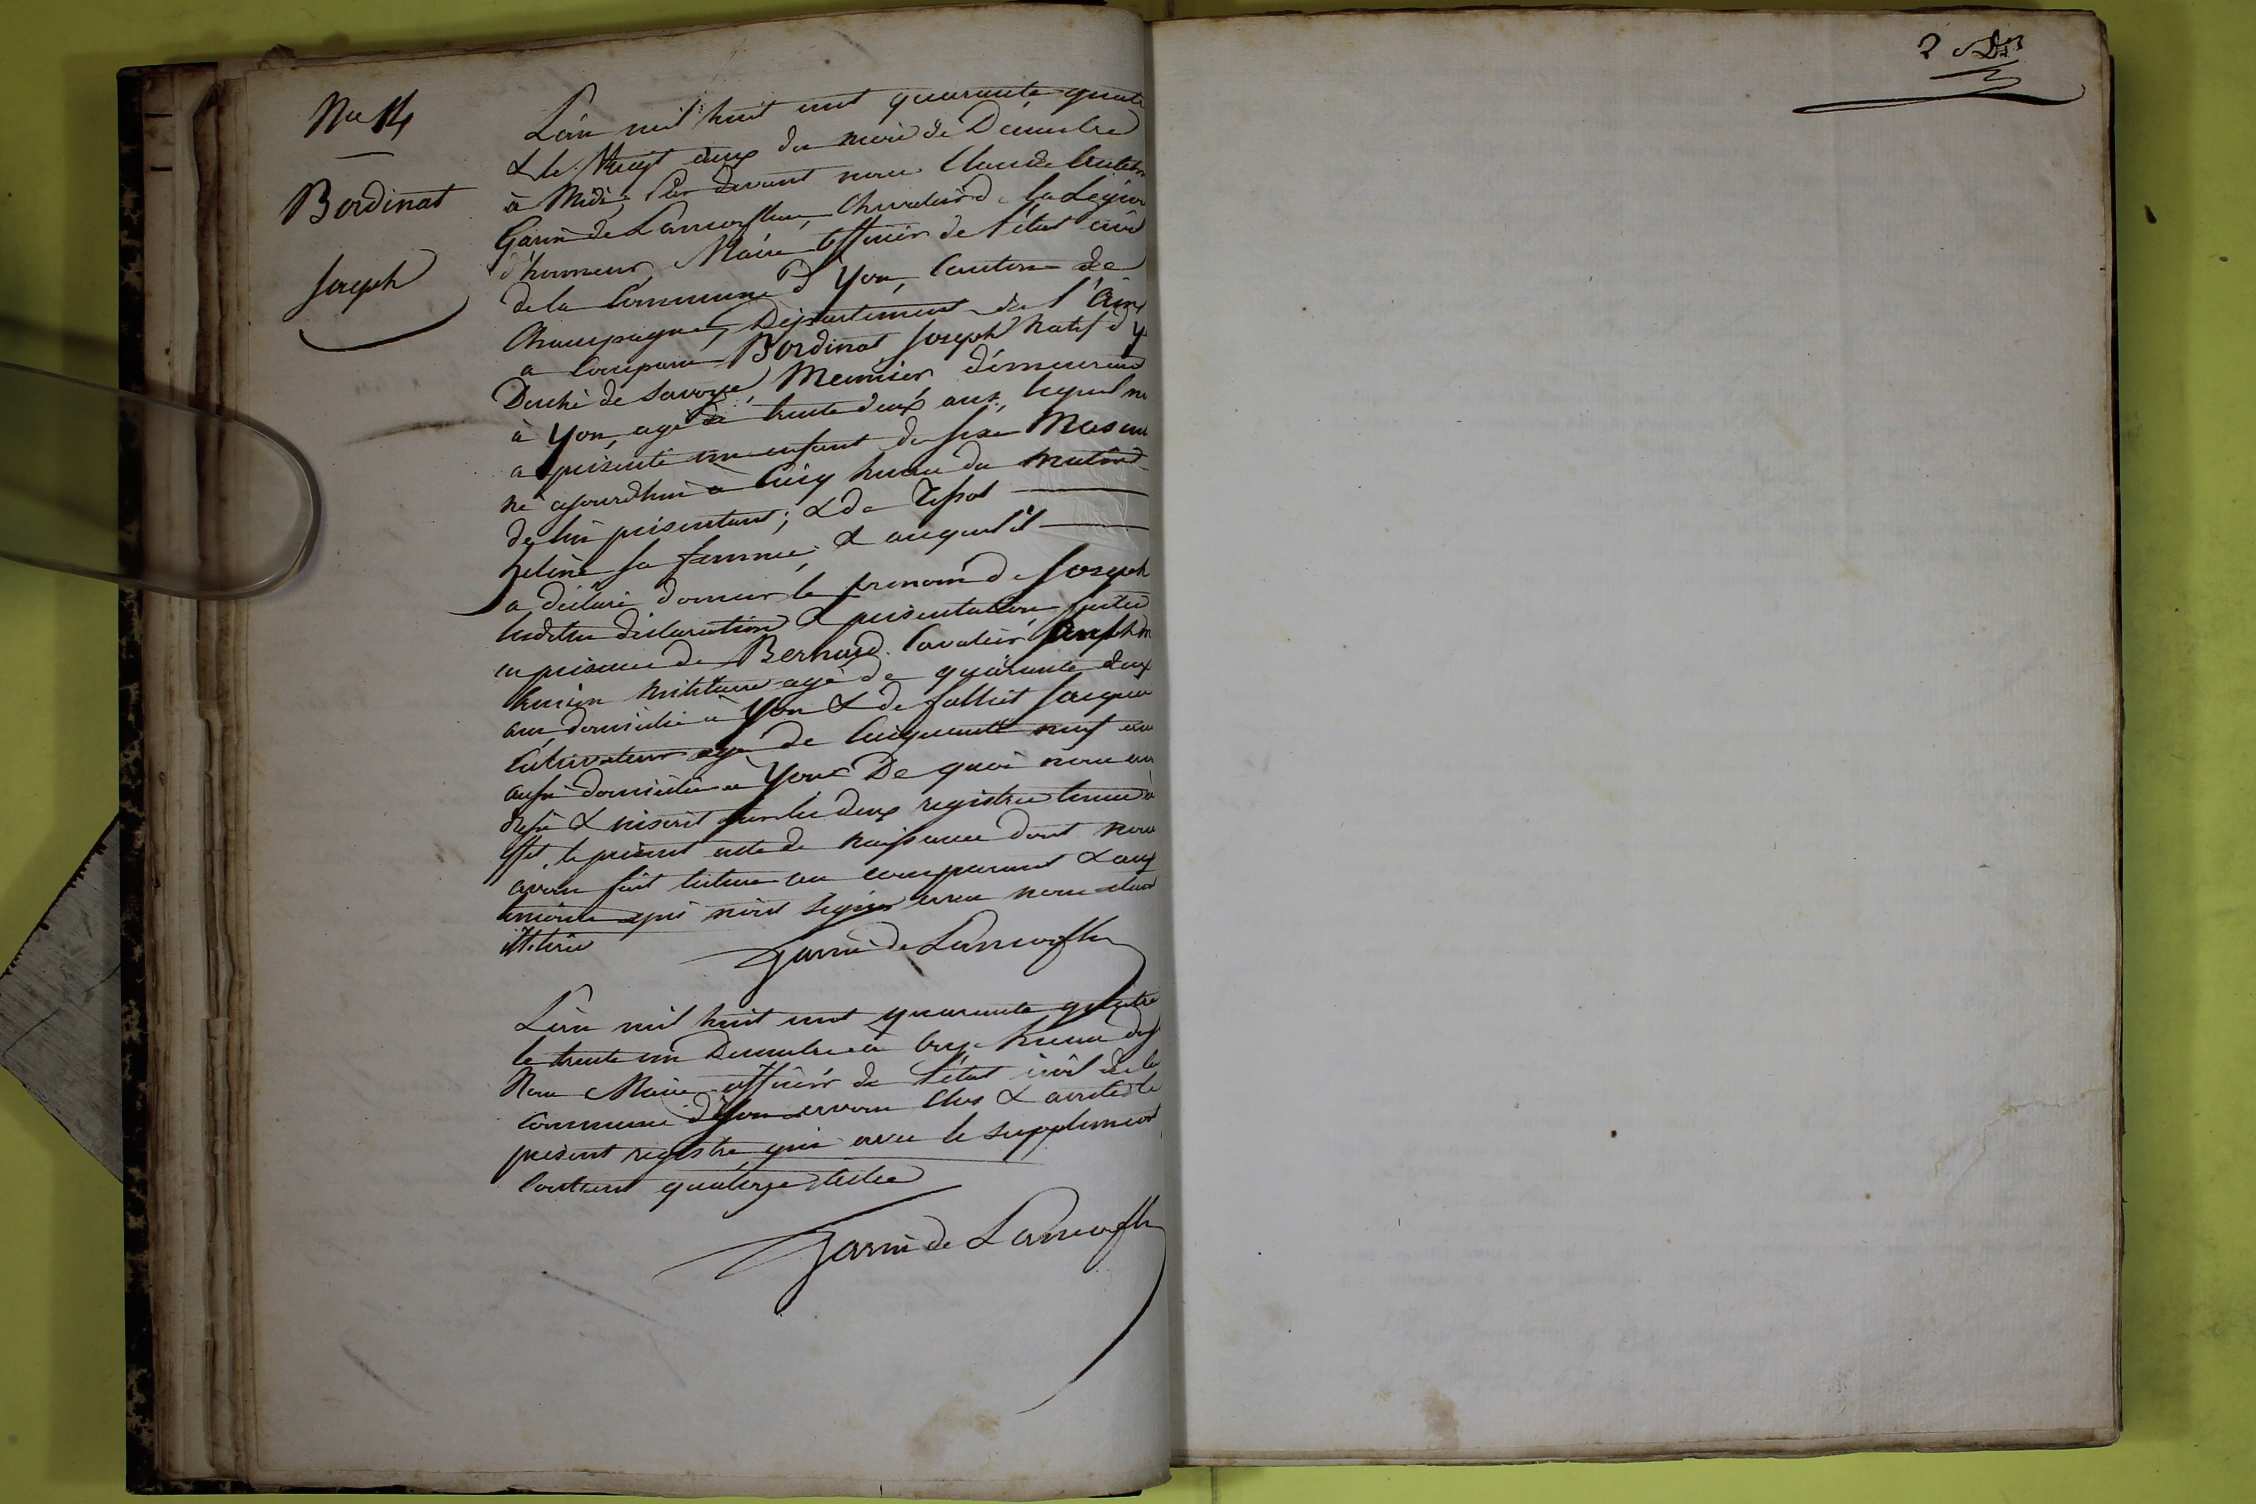 2
Nu 14
Bordinat
Joseph
L'an mil huit cent quarante quatre
& le Vingt deux du mois de Decembre
à Midi Par devant nous Claude
Garin de Lamorflan, Chevalier de la Légion
d'honneur, Maire Officier de l'état civil
de la Commune d'Yon, Canton de
Champagne, Département de l'Ain,
a Comparu Bordinat Joseph natif d'Y
Duché de Savoye, Meunier demeurant
à Yon, agé de trente deux ans, lequel m
a présenté un enfant du sexe Mascu
né ajourdhui à Cinq heures du matin
de lui présentant, & de Tissot
Heline sa femme, & auquel il
a déclaré donner le prénom de Joseph
lesdites déclaration & présentation faites
en présence de Bernard Cavalier
ancien Militaire agé de quarante deux
ans domicilié à Yon & de falliet Jacques
Cultivateur agé de Cinquante neuf ans
aussi domicilié à Yon De quoi nous av
dressé & inscrit sur les deux registres tenus à
effet, le présent acte de naissance dont nous
avons fait lecture au comparant & aux
témoins qui n'ont signés avec nous
illitéré
Garin de Lamorflan
L'an mil huit cent quarante quatre
le trente un Decembre à heures du
Nous Maire officier de l'état civil de la
Commune d'Yon avons Clos & arrêté le
présent registre qui avec le supplement
Contient quatorze actes
Garin de Lamorfl